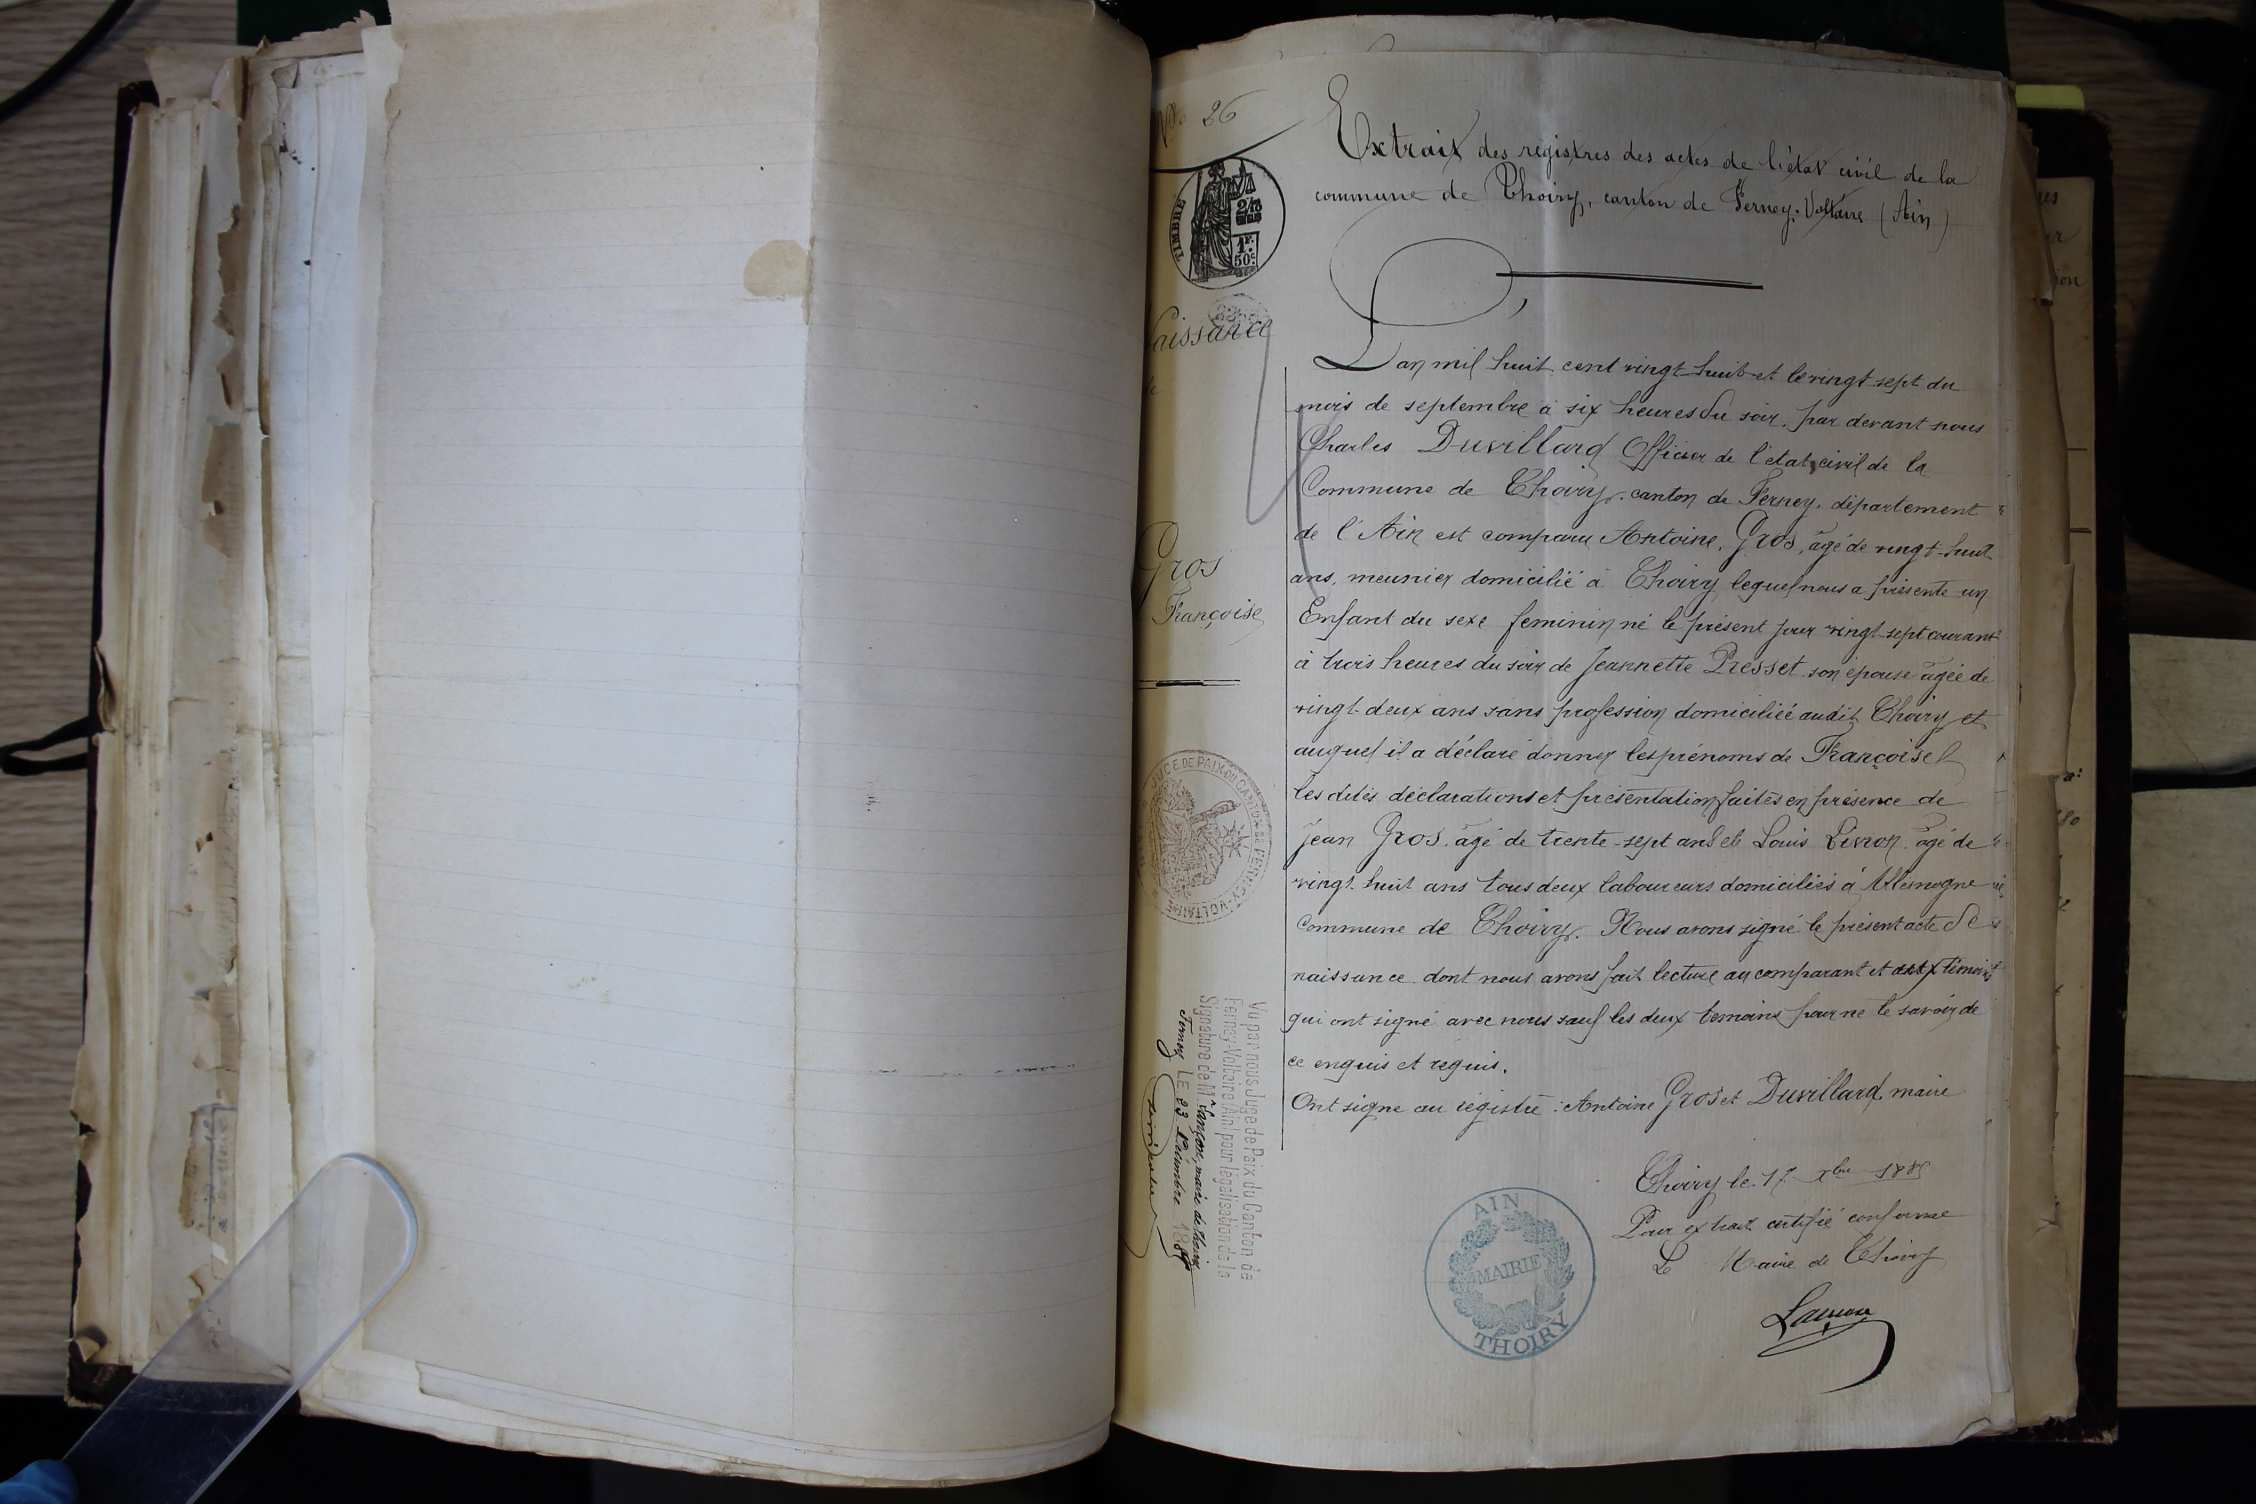 No 26
TIMBRE
2/10
EN SUS
1F.
50c
Naissance
de
Gros
Françoise
JUGE DE PAIX DU CANTON DE FERNEY-VOLTAIRE
Vu par nous Juge de Paix du Canton de
Ferney-Voltaire (Ain) pour légalisation de la
Signature de M. Lançon, maire de Thoiry
Ferney LE 23 Décembre 188
Extrait des registres des actes de l'état civil de la
commune de Thoiry, canton de Ferney-Voltaire (Ain)
L'an mil huit cent vingt-huit et le vingt-sept du
mois de septembre à six heures du soir, par devant nous
Charles Duvillard Officier de l'état civil de la
Commune de Thoiry, canton de Ferney, département
de l'Ain est comparu Antoine, Gros, âgé de vingt-huit
ans, meunier domicilié à Thoiry lequel nous a présenté un
Enfant du sexe feminin né le présent jour vingt-sept courant
à trois heures du soir de Jeannette Presset son épouse âgée de
vingt-deux ans sans profession domiciliée audit Thoiry et
auquel il a déclaré donner les prénoms de Françoise
les dites déclarations et présentation faites en présence de
Jean Gros, âgé de trente-sept ans et Louis Livron âgé de
vingt-huit ans tous deux laboureurs domiciliés à Allemogne
commune de Thoiry. Nous avons signé le présent acte de
naissance dont nous avons fait lecture au comparant et aux témoins
qui ont signé avec nous sauf les deux temoins pour ne le savoir de
ce enquis et requis.
Ont signé au registre : Antoine Gros et Duvillard maire
Thoiry le 17 Xbre 188
Pour extrait certifié conforme
Le Maire de Thoiry
Lançon
AIN
MAIRIE
THOIRY